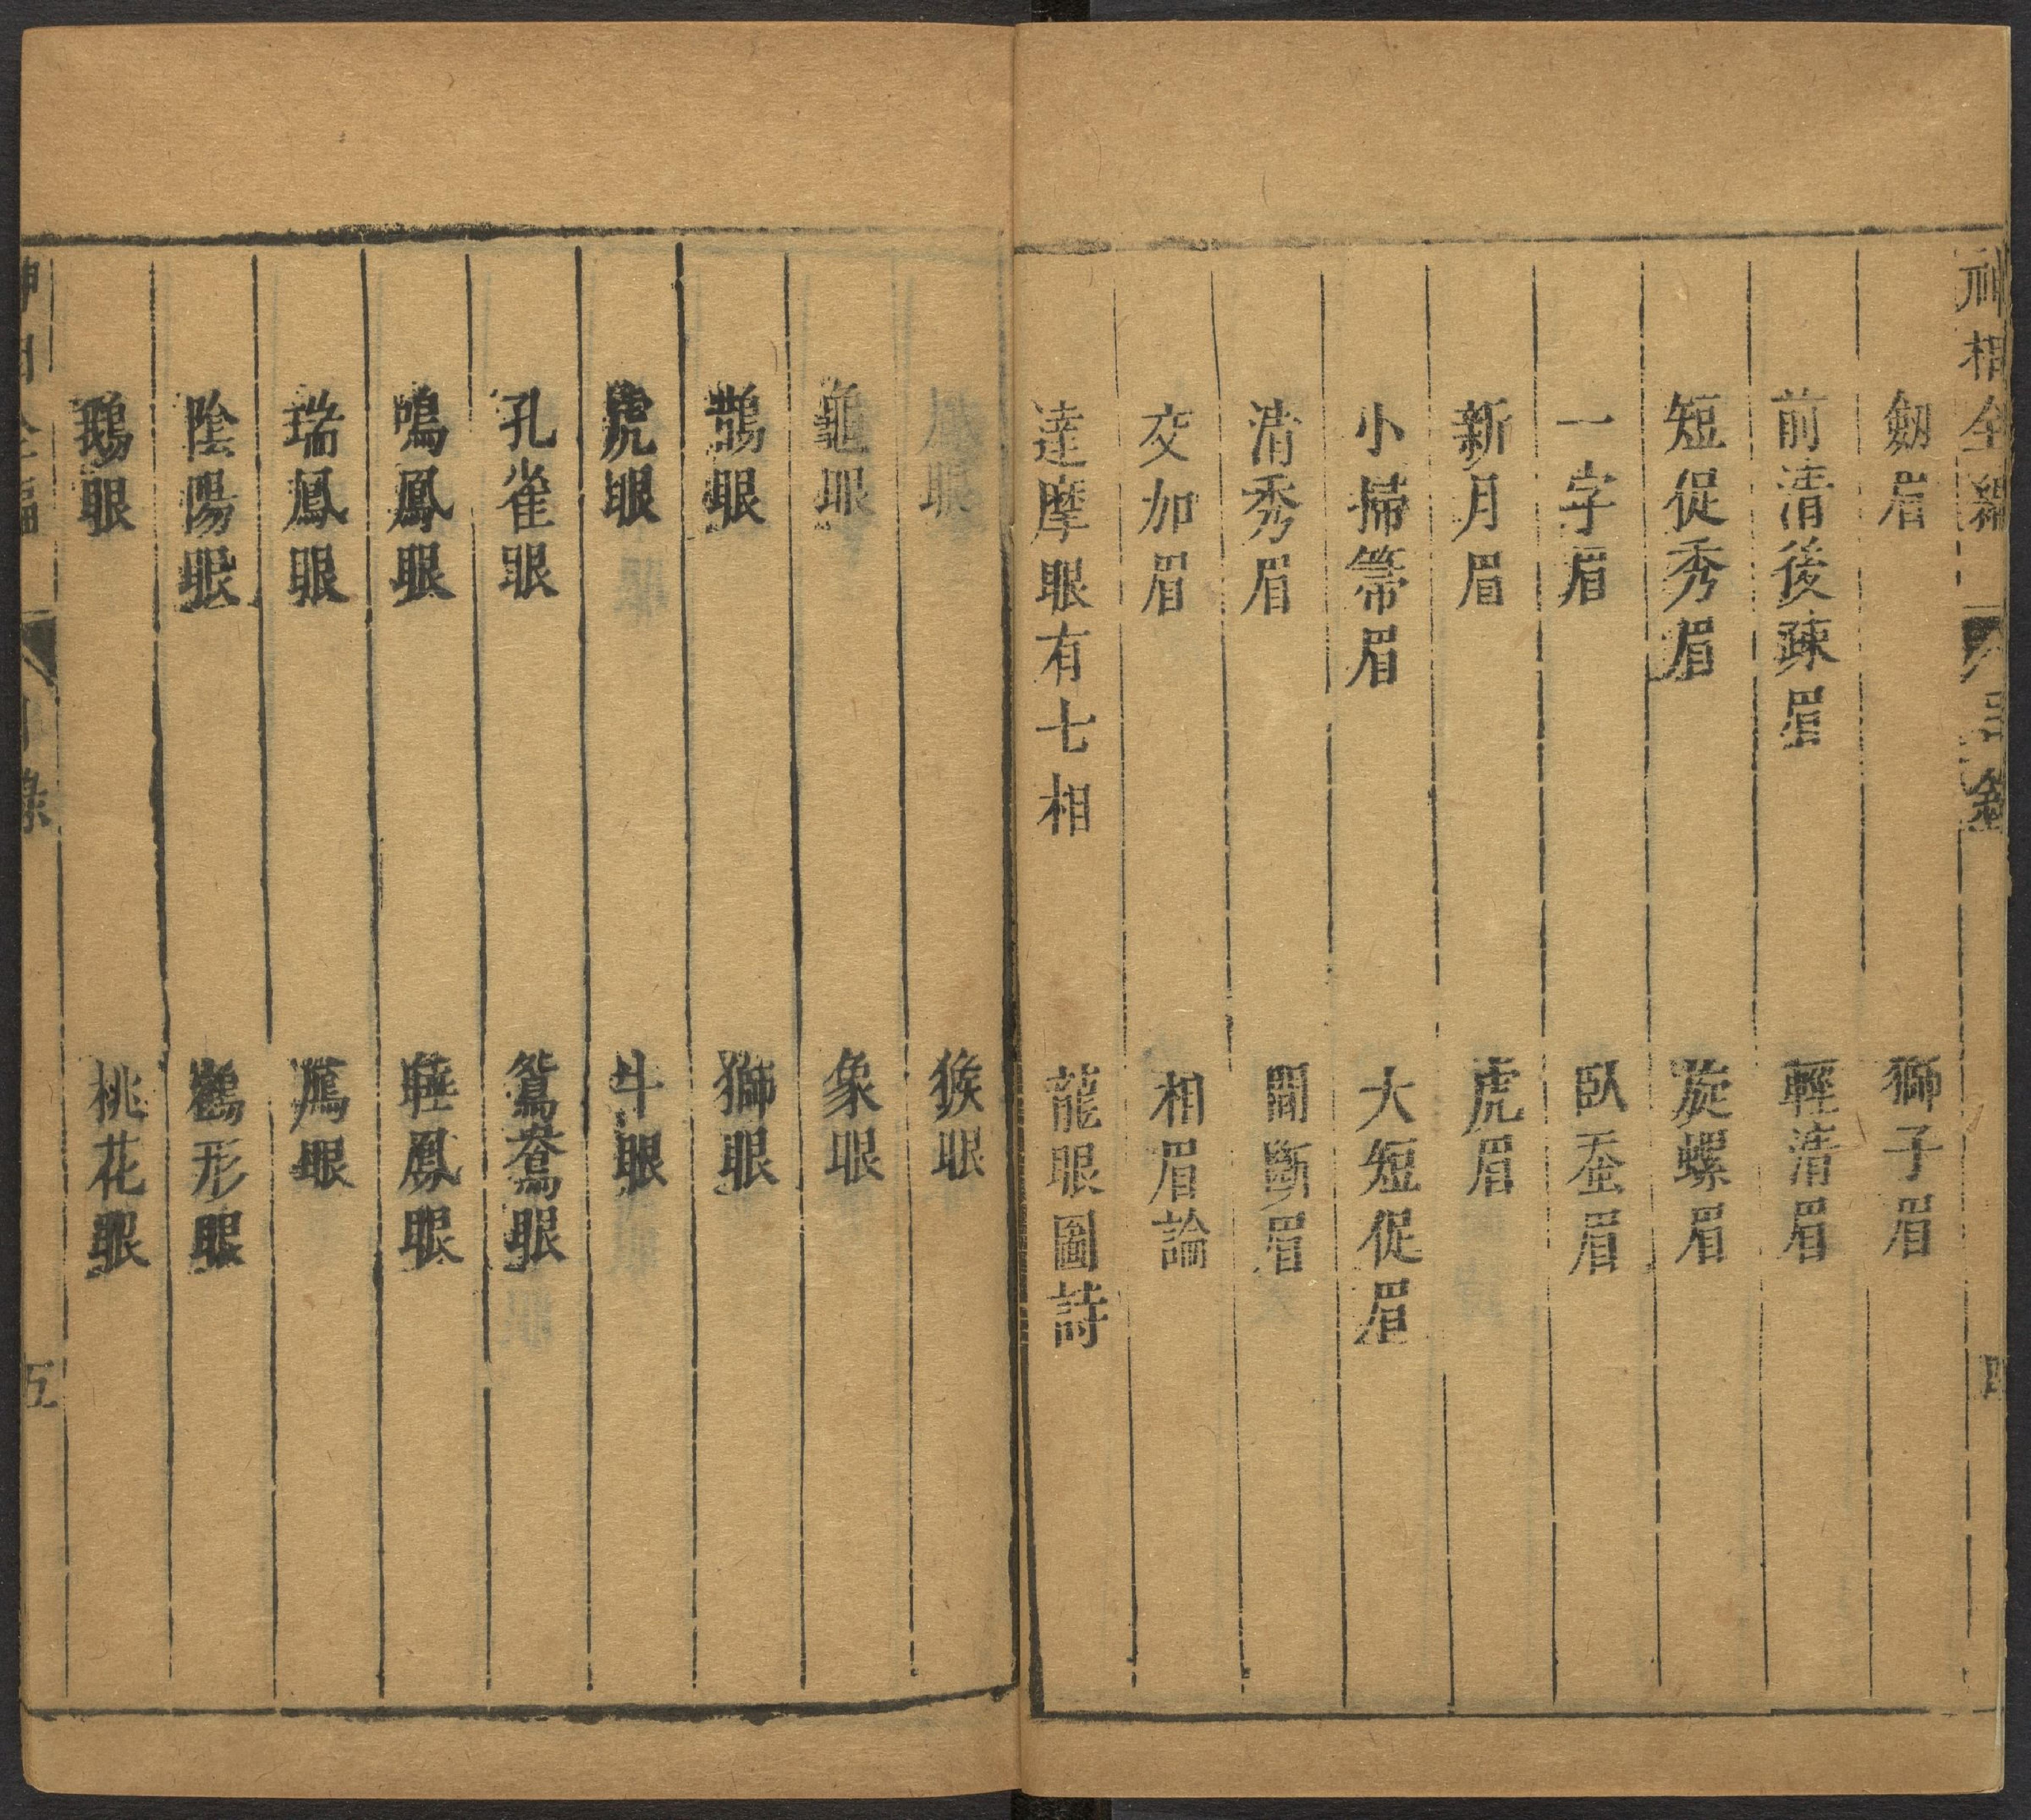 神相全編 目錄 四
劔眉 獅子眉
前清後疎眉 輕清眉
短促秀眉 旋螺眉
一字眉 臥蚕眉
新月眉 虎眉
小掃箒眉 大短促眉
清秀眉 間斷眉
交加眉 相眉論
達摩眼有七相 龍眼圖詩
鳳眼 猴眼
龜眼 象眼
鵲眼 獅眼
虎眼 牛眼
孔雀眼 鴛鴦眼
鳴鳳眼 睡鳳眼
瑞鳳眼 鴈眼
陰陽眼 鶴形眼
鵝眼 桃花眼
神相全編 目錄 五